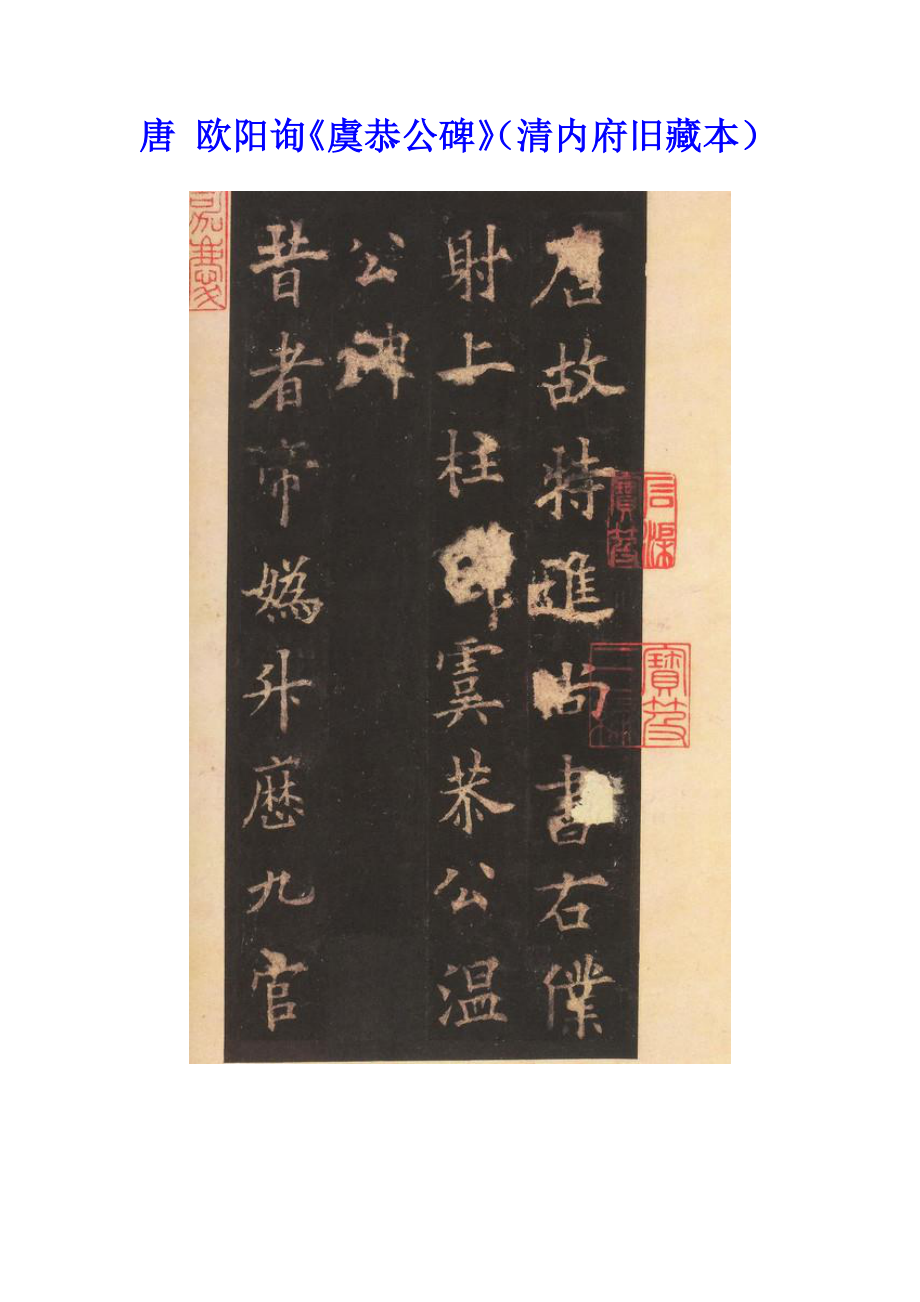 唐 欧阳询《虞恭公碑》（清内府旧藏本）
唐故特進尚書右僕
射上柱國虞恭公温
公碑
昔者帝媯升歷九官